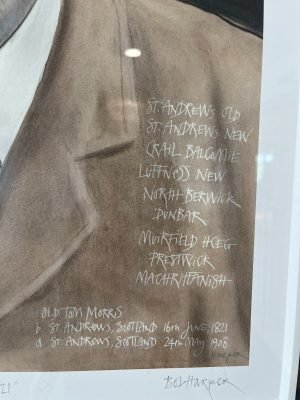 ST. ANDREWS OLD
ST. ANDREWS NEW
CRAIL BALCOMIE
LUFFNESS NEW
NORTH BERWICK
DUNBAR
MUIRFIELD HCEG
PRESTWICK
MACHRIHANISH
OLD TOM MORRIS
b. ST. ANDREWS, SCOTLAND 16th JUNE, 1821
d. ST. ANDREWS, SCOTLAND 24th MAY 1908
HARPER
21"
HARPER